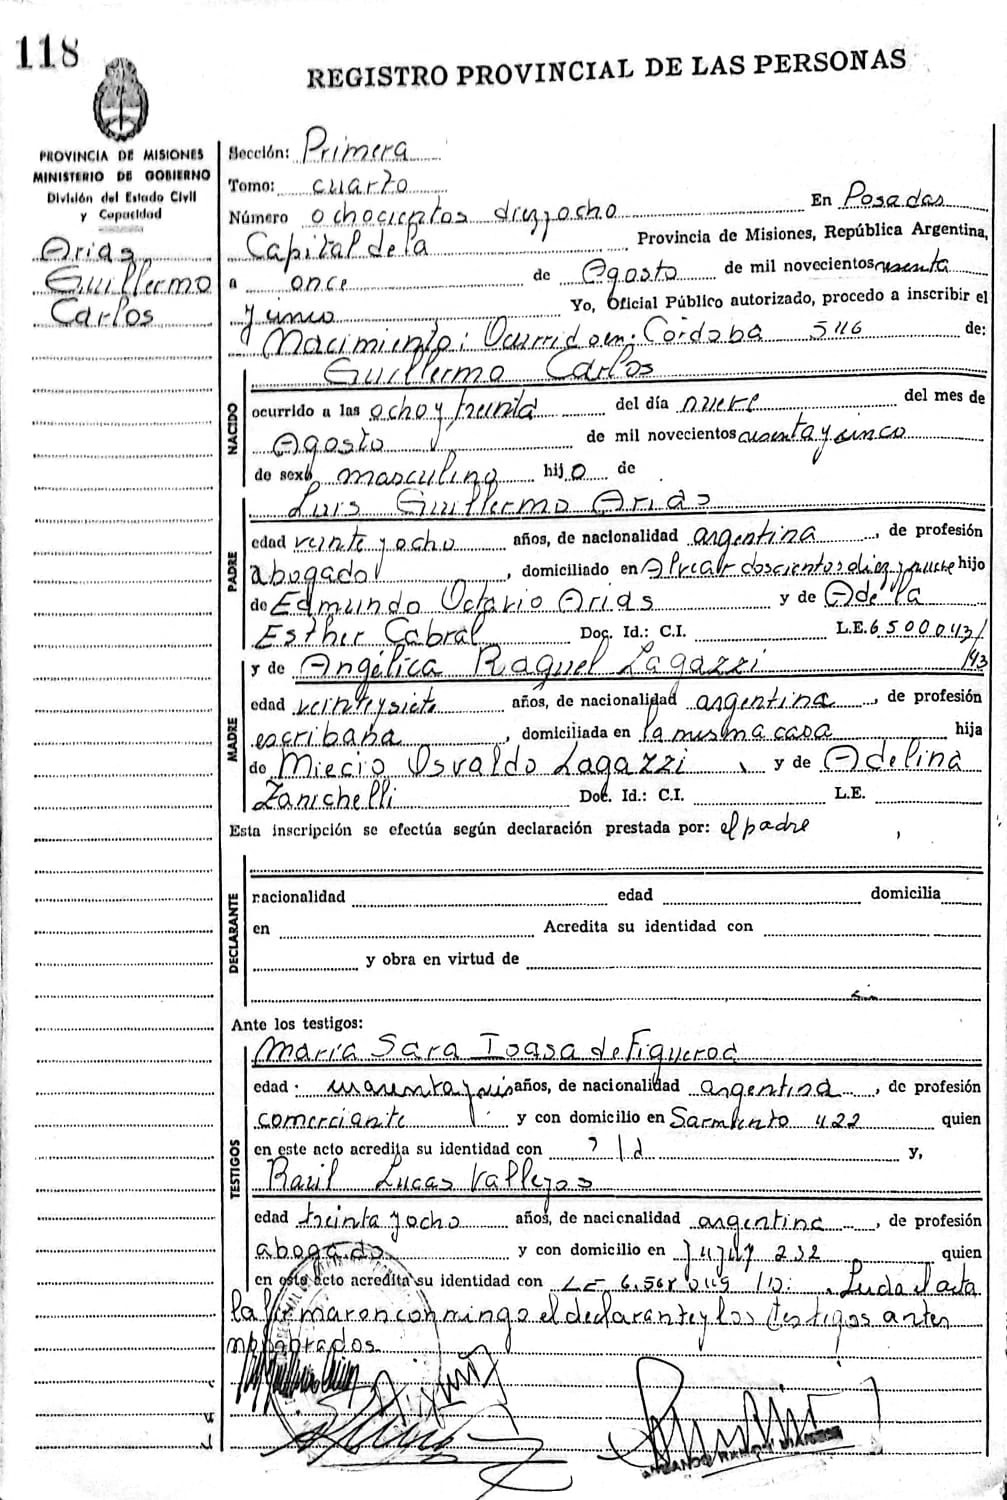 118
REGISTRO PROVINCIAL DE LAS PERSONAS
PROVINCIA DE MISIONES
MINISTERIO DE GOBIERNO
División del Estado Civil
y Capacidad
Arias
Guillermo
Carlos
Sección: Primera
Tomo: cuarto
Número ochocientos diez y ocho En Posadas
Capital de la Provincia de Misiones, República Argentina,
a once de Agosto de mil novecientos sesenta
y cinco Yo, Oficial Público autorizado, procedo a inscribir el
Nacimiento: Ocurrido en: Cordoba 5116 de:
Guillermo Carlos
NACIDO
ocurrido a las ocho y treinta del día nueve del mes de
Agosto de mil novecientos sesenta y cinco
de sexo masculino hijo de
Luis Guillermo Arias
PADRE
edad veinte y ocho años, de nacionalidad argentina, de profesión
abogado, domiciliado en Alvear doscientos diez y nueve hijo
de Edmundo Octavio Arias y de Adela
Esther Cabral Doc. Id.: C.I. L.E. 6500043/
y de Angélica Raquel Lagazzi /43
MADRE
edad veinte y siete años, de nacionalidad argentina, de profesión
escribana, domiciliada en la misma casa hija
de Miecio Osvaldo Lagazzi y de Adelina
Zanichelli Doc. Id.: C.I. L.E.
Esta inscripción se efectúa según declaración prestada por: el padre
DECLARANTE
nacionalidad edad domicilia
en Acredita su identidad con
y obra en virtud de
Ante los testigos:
TESTIGOS
María Sara de Figueroa
edad: años, de nacionalidad argentina, de profesión
comerciante y con domicilio en Sarmiento 422 quien
en este acto acredita su identidad con y,
Raúl Lucas Vallejos
edad treinta y ocho años, de nacionalidad argentina, de profesión
abogado y con domicilio en Jujuy 232 quien
en este acto acredita su identidad con LE Leida el acta
la firmaron conmigo el declarante y los testigos antes
nombrados.